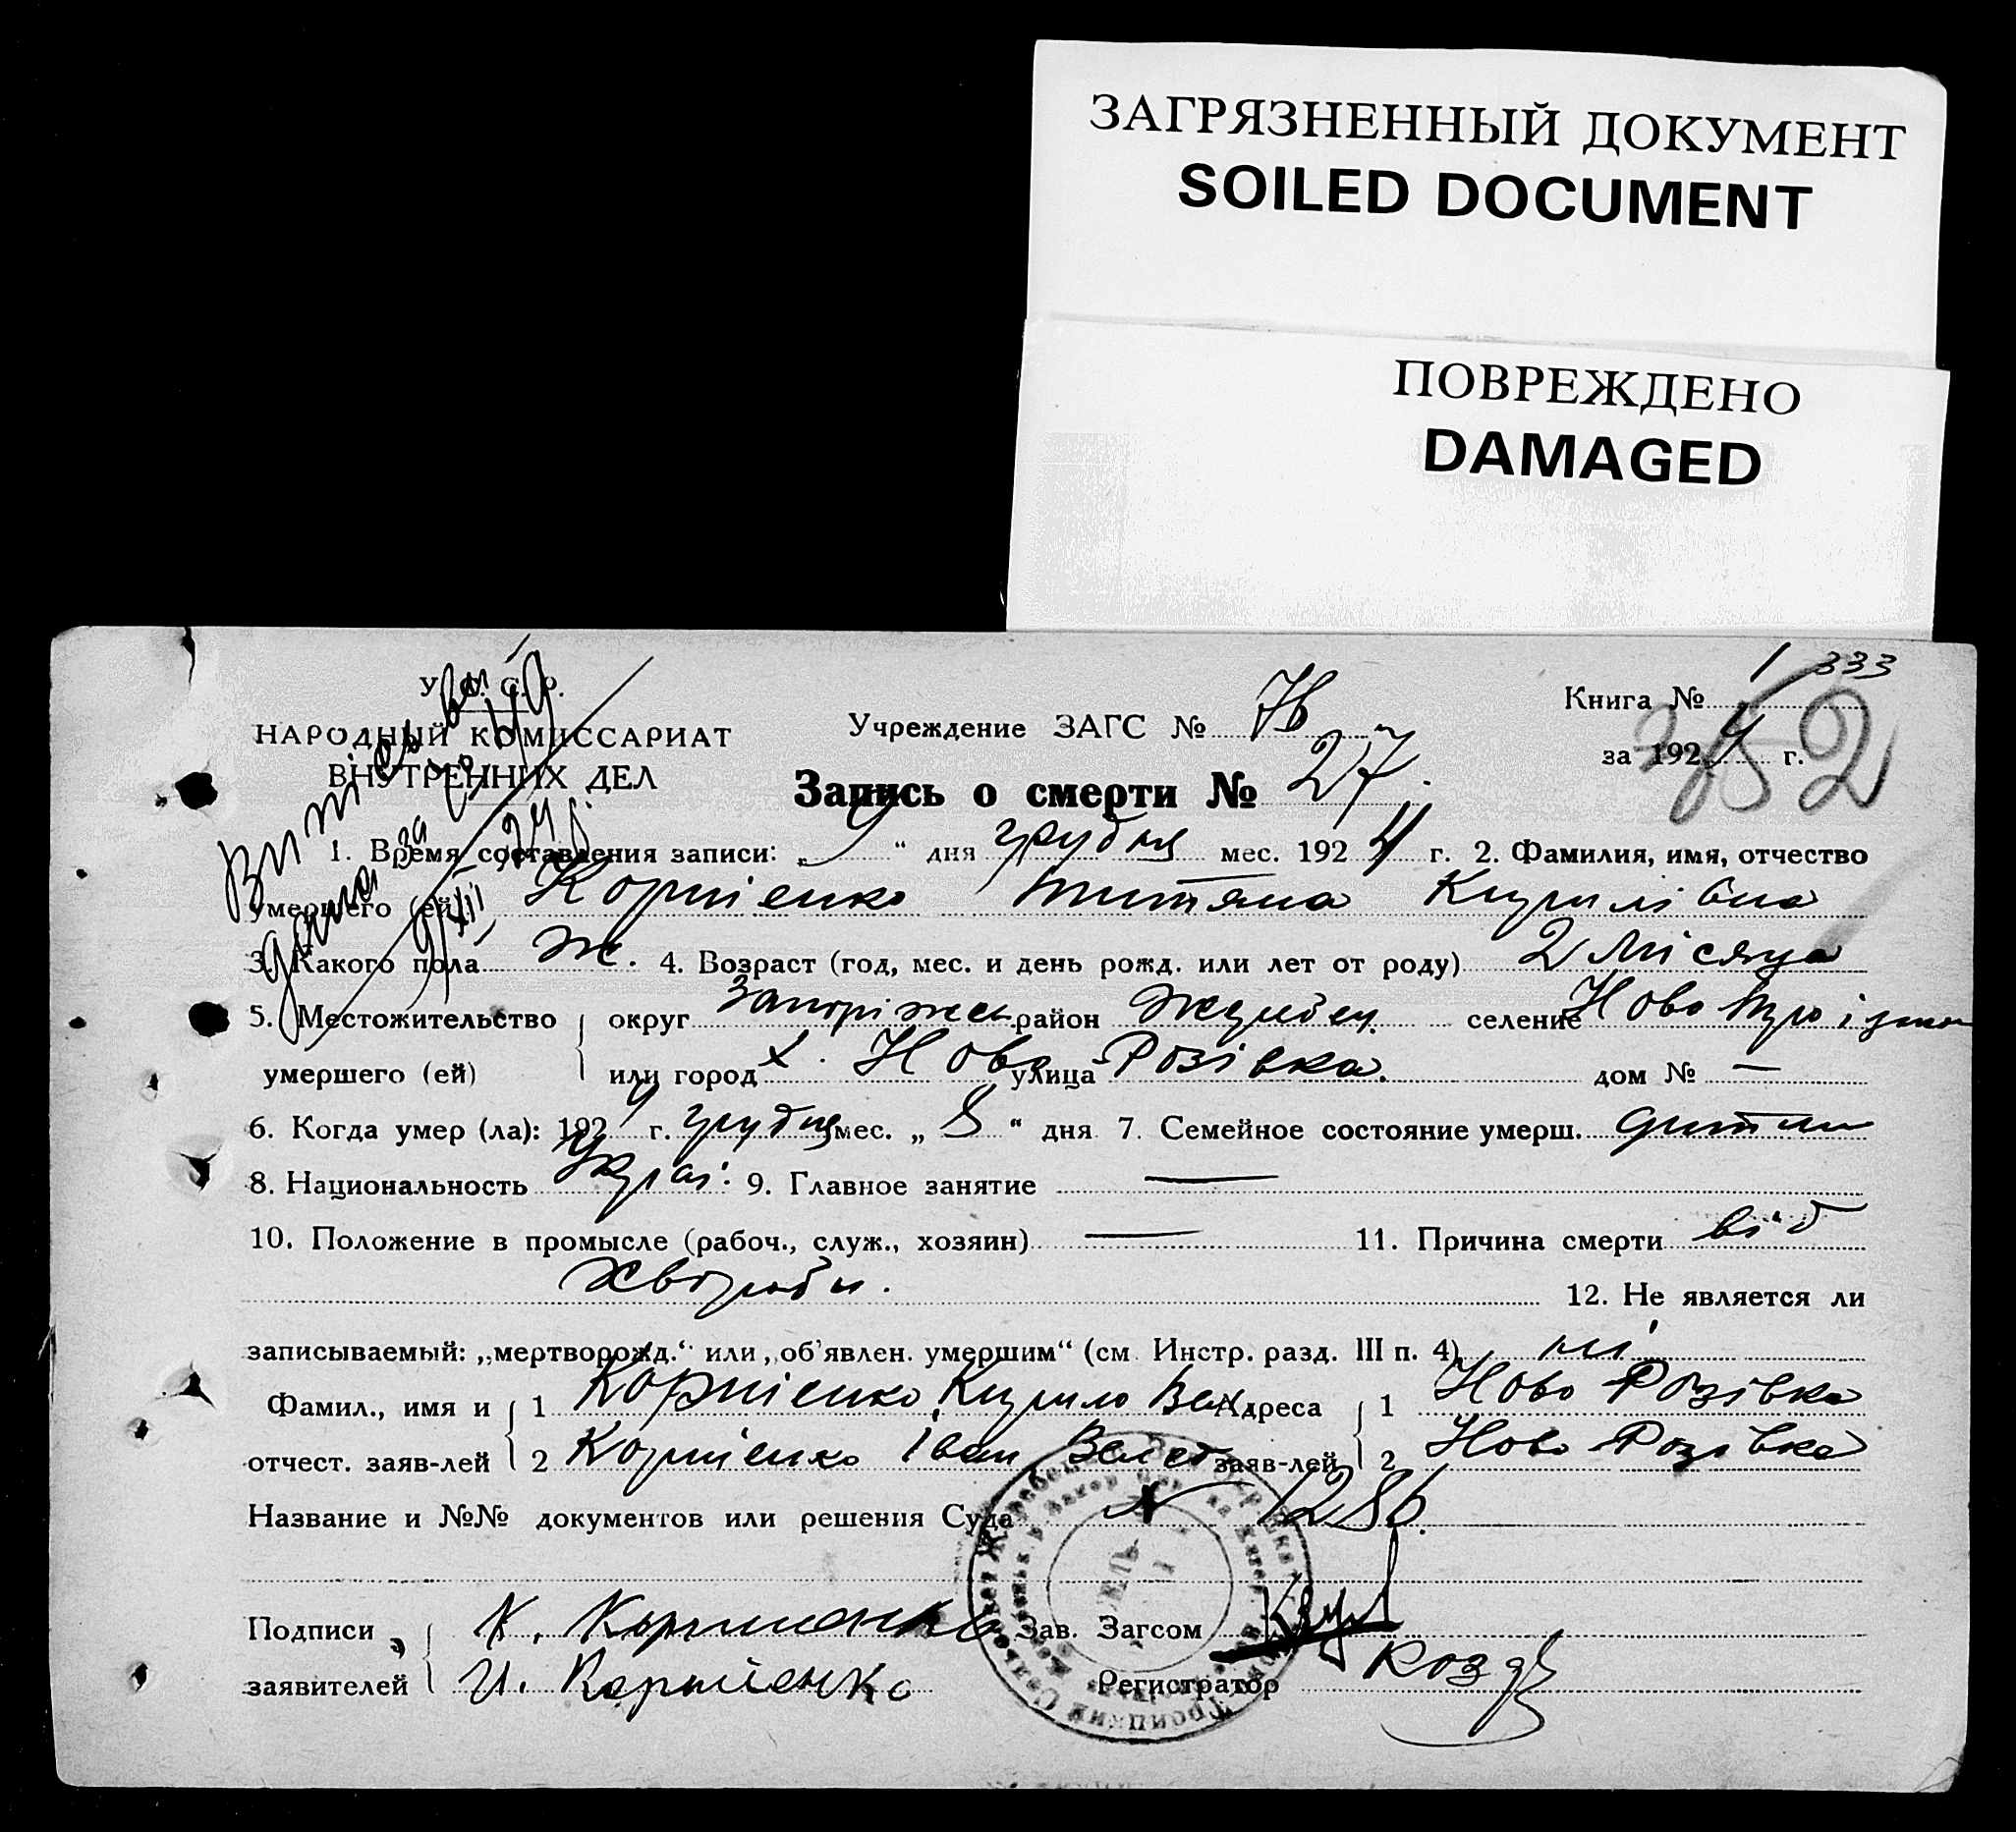 ЗАГРЯЗНЕННЫЙ ДОКУМЕНТ
SOILED DOCUMENT
ПОВРЕЖДЕНО
DAMAGED
333
У. С. С. Р.
НАРОДНЫЙ КОМИССАРИАТ
ВНУТРЕННИХ ДЕЛ
Учреждение ЗАГС №
Книга № 1
за 1924 г.
352
Запись о смерти № 27
Витіс
за №
9/XII 24
1. Время составления записи: „9“ дня грудня мес. 1924 г. 2. Фамилия, имя, отчество
умершего (ей) Корнієнко Титяна Кирилівна
3. Какого пола ж. 4. Возраст (год, мес. и день рожд. или лет от роду) 2 місяця
5. Местожительство умершего (ей) округ Запоріжськ район Жеребец. селение Ново Троїцьк
или город х. Ново улица Розівка. дом № —
6. Когда умер (ла): 1924 г. грудня мес. „8“ дня 7. Семейное состояние умерш. дитина
8. Национальность Украї. 9. Главное занятие —
10. Положение в промысле (рабоч., служ., хозяин) — 11. Причина смерти від
хвороби. 12. Не является ли
записываемый: „мертворожд.“ или „об'явлен. умершим“ (см. Инстр. разд. III п. 4) ні
Фамил., имя и отчест. заяв-лей 1 Корнієнко Кирило Адреса заяв-лей 1 Ново Розівка
2 Корнієнко Іван 2 Ново Розівка
Название и №№ документов или решения Суда № 1286.
Подписи заявителей К. Корниенко Зав. Загсом
И. Корниенко Регистратор